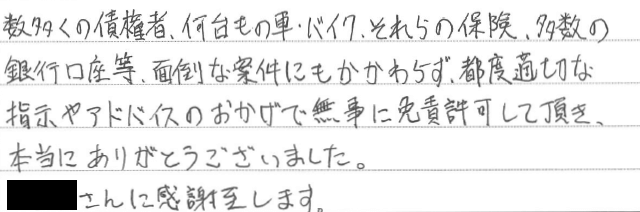 数多くの債権者、何台もの車・バイク、それらの保険、多数の
銀行口座等、面倒な案件にもかかわらず、都度適切な
指示やアドバイスのおかげで無事に免責許可して頂き、
本当にありがとうございました。
さんに感謝至します。